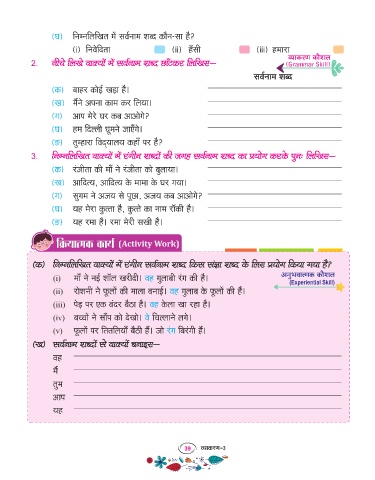 (घ) निम्नलिखित में सर्वनाम शब्द कौन-सा है?
(i) निवेदिता (ii) हँसी (iii) हमारा
2. नीचे लिखे वाक्यों में सर्वनाम शब्द छाँटकर लिखिए—
व्याकरण कौशल
(Grammar Skill)
सर्वनाम शब्द
(क) बाहर कोई खड़ा है।
(ख) मैंने अपना काम कर लिया।
(ग) आप मेरे घर कब आओगे?
(घ) हम दिल्ली घूमने जाएँगे।
(ङ) तुम्हारा विद्यालय कहाँ पर है?
3. निम्नलिखित वाक्यों में रंगीन शब्दों की जगह सर्वनाम शब्द का प्रयोग करके पुनः लिखिए—
(क) रंजीता की माँ ने रंजीता को बुलाया।
(ख) आदित्य, आदित्य के मामा के घर गया।
(ग) सुगम ने अजय से पूछा, अजय कब आओगे?
(घ) यह मेरा कुत्ता है, कुत्ते का नाम रॉकी है।
(ङ) यह रमा है। रमा मेरी सखी है।
क्रियात्मक कार्य (Activity Work)
(क) निम्नलिखित वाक्यों में रंगीन सर्वनाम शब्द किस संज्ञा शब्द के लिए प्रयोग किया गया है?
अनुभवात्मक कौशल
(Experiential Skill)
(i) माँ ने नई शॉल खरीदी। वह गुलाबी रंग की है।
(ii) रोशनी ने फूलों की माला बनाई। वह गुलाब के फूलों की है।
(iii) पेड़ पर एक बंदर बैठा है। वह केला खा रहा है।
(iv) बच्चों ने साँप को देखो। वे चिल्लाने लगे।
(v) फूलों पर तितलियाँ बैठी हैं। जो रंग बिरंगी हैं।
(ख) सर्वनाम शब्दों से वाक्यों बनाइए—
वह
मैं
तुम
आप
यह
39 व्याकरण-3